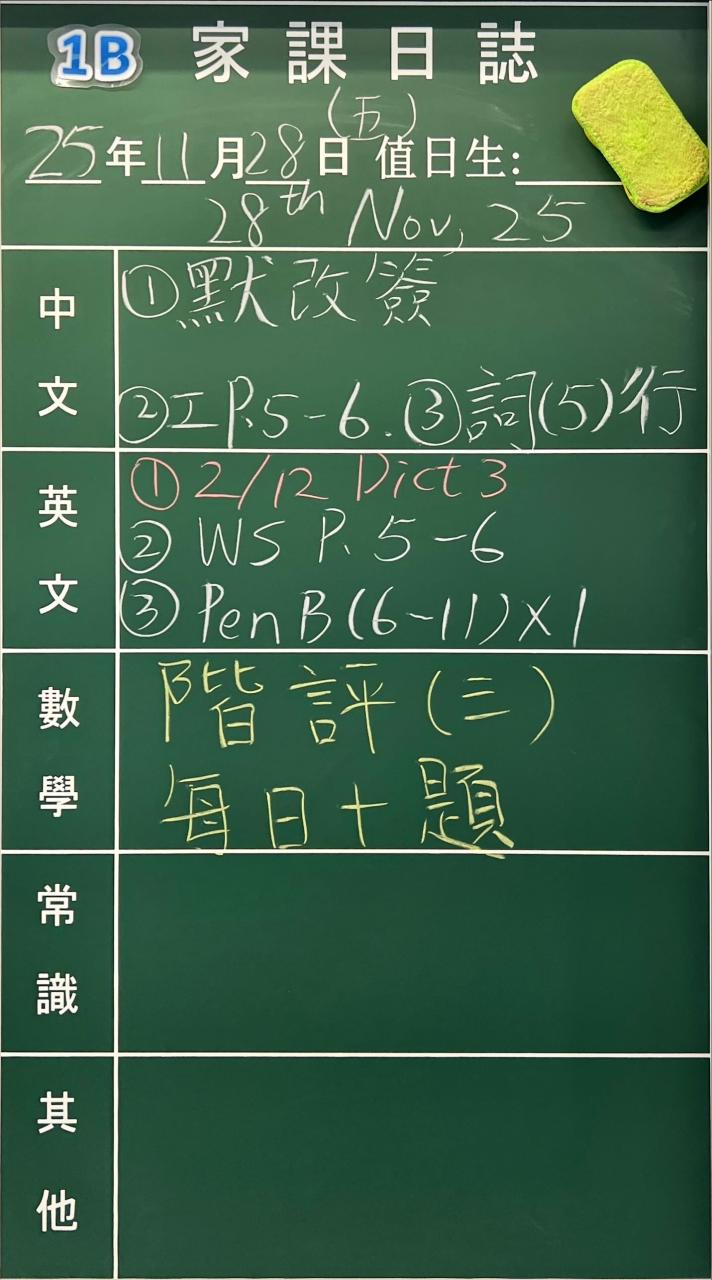 1B 家課日誌
(五)
25年11月28日 值日生:
28th Nov, 25
中文
①默改簽
②工 P.5-6. ③詞(5)1行
英文
① 2/12 Dict 3
② WS P. 5-6
③ Pen B (6-11) x 1
數學
階評(三)
每日十題
常識
其他